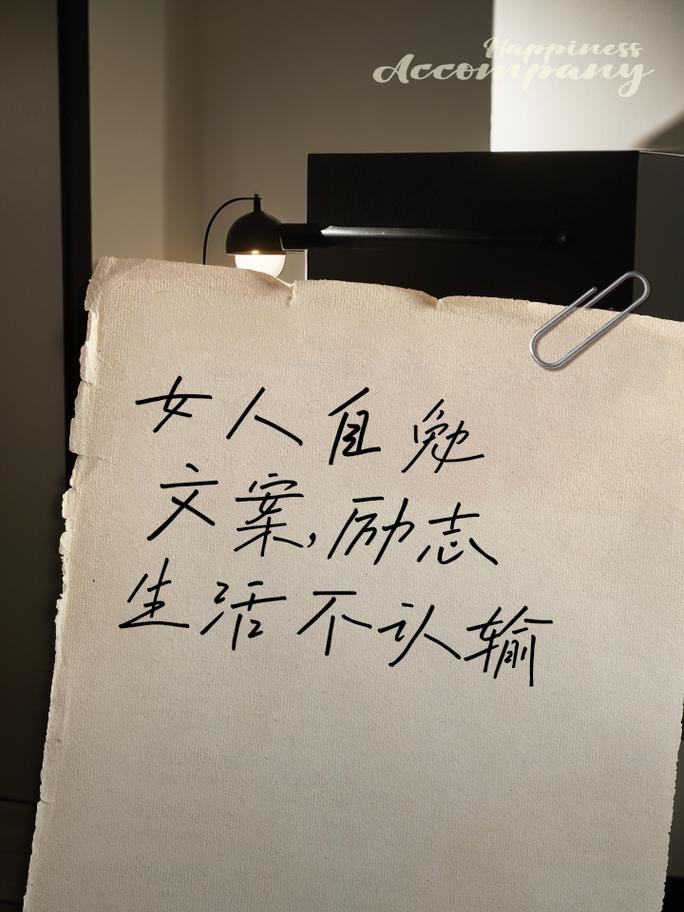 Happiness
Accompany
女人自勉
文案,励志
生活不认输